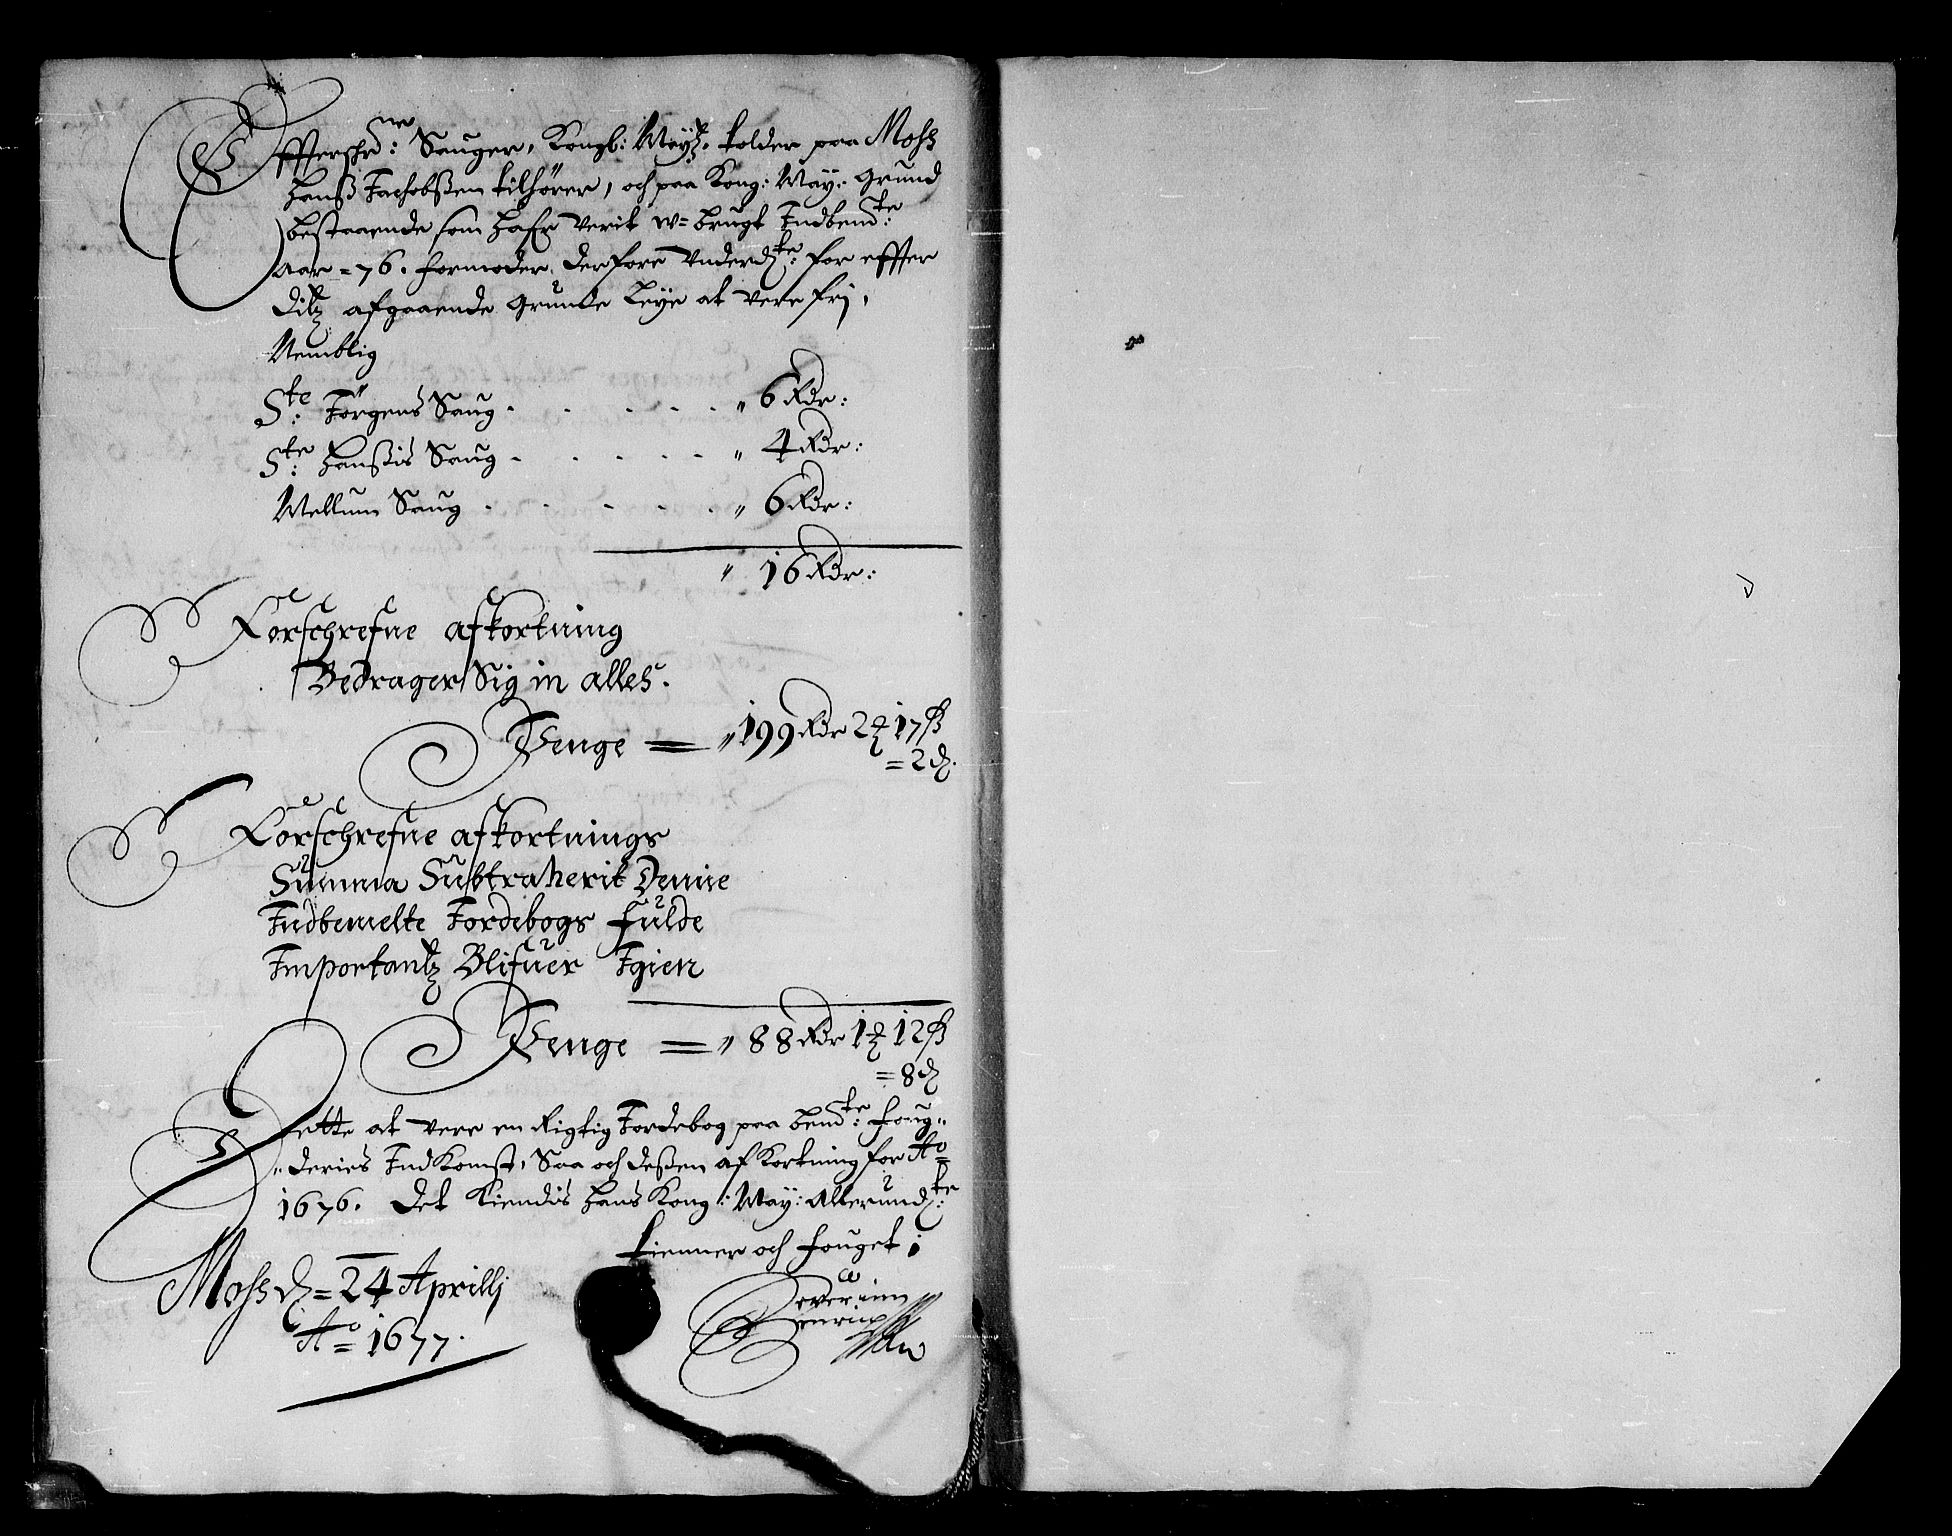 Effterschr:ne Sauger, Kongl: Maytz. tolder paa Moss
Hanss Jachobssen tilhörer, och paa Kong: May: Grund
bestaaende som hafr verit w= brugt Indbem:te
Aar =76. formoder derfore Vnderd:te for effter
ditz afgaaende Grunde Leye at vere frj,
Nemblig
S:te Jörgens Saug . . . . . " 6 Rdr:
S:te Hanssis Saug . . . . . " 4 Rdr:
Mellum Saug . . . . . " 6 Rdr:
" 16 Rdr:
Forschrefne afkortning
Bedrager Sig in alles.
Penge = " 199 Rdr 2 ꝶ 17 ß
= 2 ₰.
Forschrefne afkortnings
Summa Subtraherit Denne
Indbemelte Jordebogs fulde
Importantz Blifuer Igien
Penge = " 88 Rdr 1 ꝶ 12 ß
= 8 ₰
Dette at vere en Rigtig Jordebog paa bem:te foug-
deries IndKomst, Saa och dessen afKortning for Ao
1676. Det Kiendis Hans Kong: May: Allerund:te
tienner och fouget i
Moss d = 24 Aprillj
Ao = 1677.